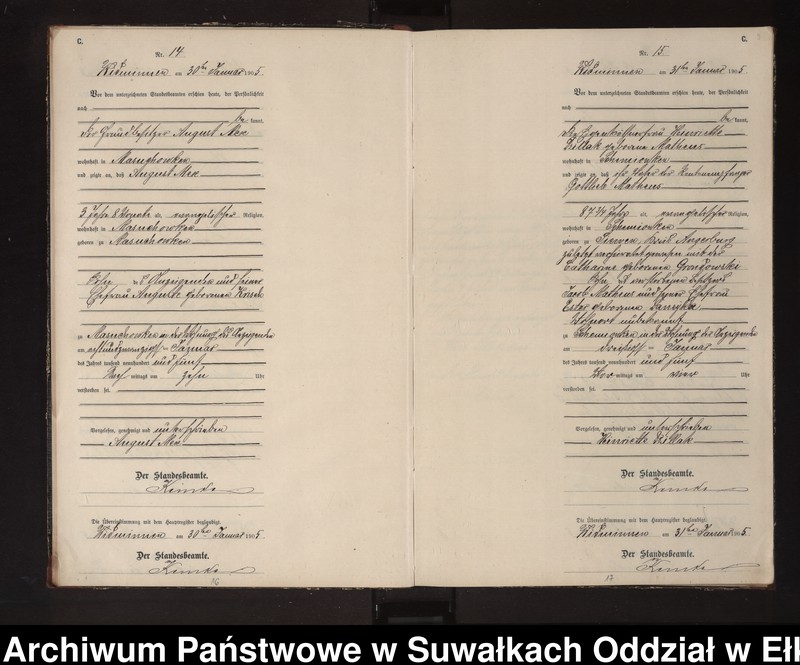 C.
Nr. 14
Widminnen am 30ten Januar 1905.
Vor dem unterzeichneten Standesbeamten erschien heute, der Persönlichkeit
nach
be kannt,
der Grundbesitzer August Mex
wohnhaft in Masuchowken
und zeigte an, daß August Mex
3 Jahre 8 alt, evangelischer Religion,
wohnhaft in Masuchowken
geboren zu Masuchowken
Sohn des Anzeigenden und seiner
Ehefrau Auguste geborenen
zu Masuchowken in der Wohnung des Anzeigenden
am Januar
des Jahres tausend neunhundert und fünf
Vor mittags um zehn Uhr
verstorben sei.
Vorgelesen, genehmigt und unterschrieben
August Mex
Der Standesbeamte.
Die Übereinstimmung mit dem Hauptregister beglaubigt.
Widminnen am 30ten Januar 1905.
Der Standesbeamte.
16
C.
Nr. 15
Widminnen am 31ten Januar 1905.
Vor dem unterzeichneten Standesbeamten erschien heute, der Persönlichkeit
nach
be kannt,
die Eigenkäthnerfrau Henriette
geborene Matheus
wohnhaft in
und zeigte an, daß ihr Vater der Rentenempfänger
Gottlieb Matheus
87 3/4 Jahre alt, evangelischer Religion,
wohnhaft in
geboren zu Kreis Angerburg
zuletzt verheirathet gewesen mit der
Catharine geborenen
Sohn des verstorbenen
Jacob Matheus und seiner Ehefrau
Ester geborenen
Wohnort unbekannt
zu in der Wohnung der Anzeigenden
am dreißigsten Januar
des Jahres tausend neunhundert und fünf
Vor mittags um vier Uhr
verstorben sei.
Vorgelesen, genehmigt und unterschrieben
Henriette
Der Standesbeamte.
Die Übereinstimmung mit dem Hauptregister beglaubigt.
Widminnen am 31ten Januar 1905.
Der Standesbeamte.
17
Archiwum Państwowe w Suwałkach Oddział w Eł